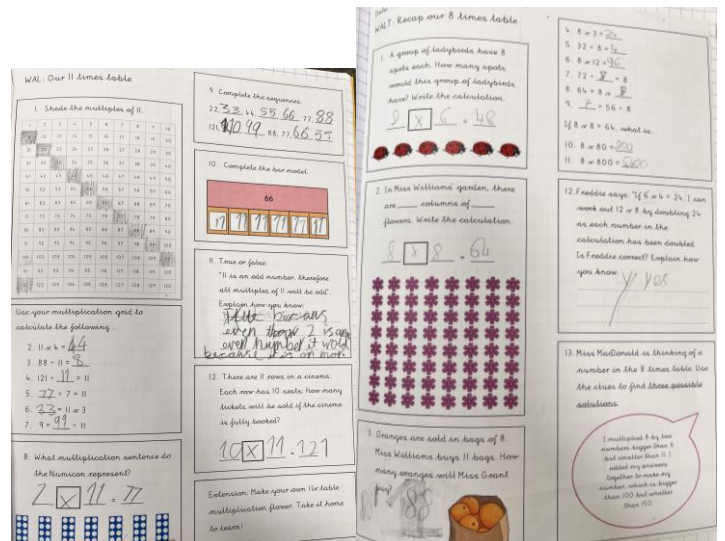 WAL: Our 11 times table
1. Shade the multiples of 11.
Use your multiplication grid to
calculate the following...
2. 11 x 4 = 44
3. 88 ÷ 11 = 8
4. 121 ÷ 11 = 11
5. 77 ÷ 7 = 11
6. 33 = 11 x 3
7. 9 = 99 ÷ 11
8. What multiplication sentence do
the Numicon represent?
2 x 11 =
9. Complete the sequences.
22, 33, 44, 55 66, 77, 88
121, 110 99 88, 77, 66 55
10. Complete the bar model.
66
11 11 11 11 11 11
11. True or false:
"11 is an odd number, therefore
all multiples of 11 will be odd".
Explain how you know.
even number it
because it is an
12. There are 11 rows in a cinema.
Each row has 10 seats. How many
tickets will be sold if the cinema
is fully booked?
10 x 11 = 121
Extension: Make your own 11x table
multiplication flower. Take it home
to learn!
WALT: Recap our 8 times table
1. A group of ladybirds have 8
spots each. How many spots
would this group of ladybirds
have? Write the calculation.
8 x 6 = 48
2. In Miss Williams' garden, there
are ____ columns of ____
flowers. Write the calculation.
8 x 8 = 64
3. Oranges are sold in bags of 8.
Miss Williams buys 11 bags. How
many oranges will Miss Grant
buy?
88
4. 8 x 3 = 24
5. 32 ÷ 8 = 4
6. 8 x 12 = 96
7. 72 ÷ 8 = 8
8. 64 = 8 x 8
9. 7 = 56 ÷ 8
If 8 x 8 = 64, what is...
10. 8 x 80 =
11. 8 x 800 = 6400
12. Freddie says: "If 6 x 4 = 24, I can
work out 12 x 8 by doubling 24
as each number in the
calculation has been doubled.
Is Freddie correct? Explain how
you know.
yes
13. Miss MacDonald is thinking of a
number in the 8 times table. Use
the clues to find three possible
solutions.
I multiplied 8 by two
numbers bigger than 6
but smaller than 11. I
added my answers
together to make my
number, which is bigger
than 100 but smaller
than 150.